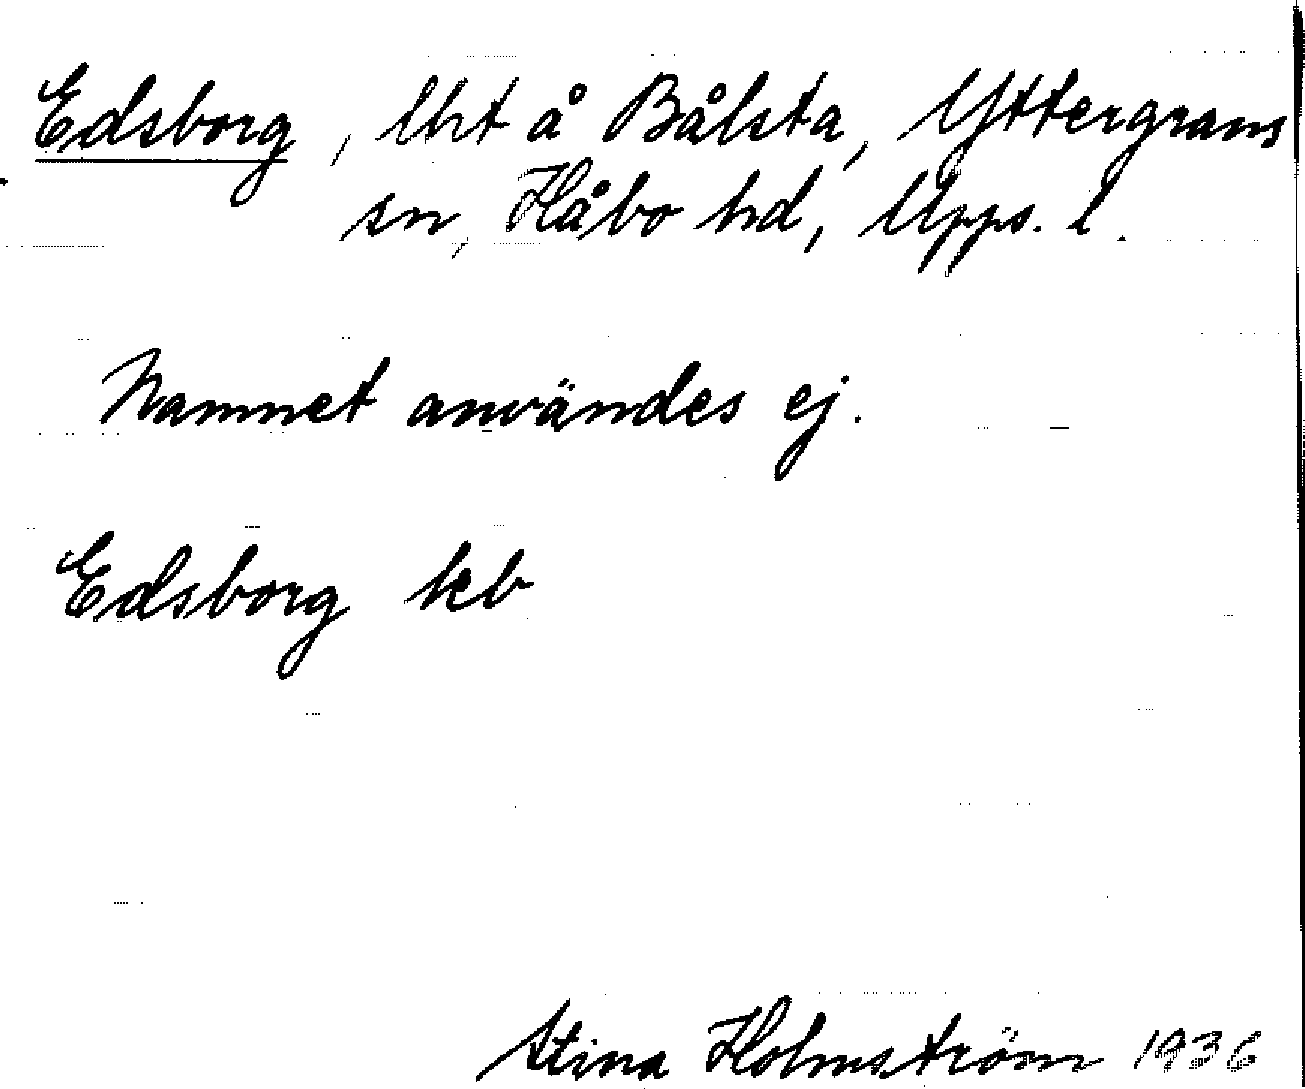 Edsborg, lht å Bålsta, Yttergrans
sn, Håbo hd, Upps. l.
Namnet användes ej.
Edsborg kb
Stina Holmström 1936